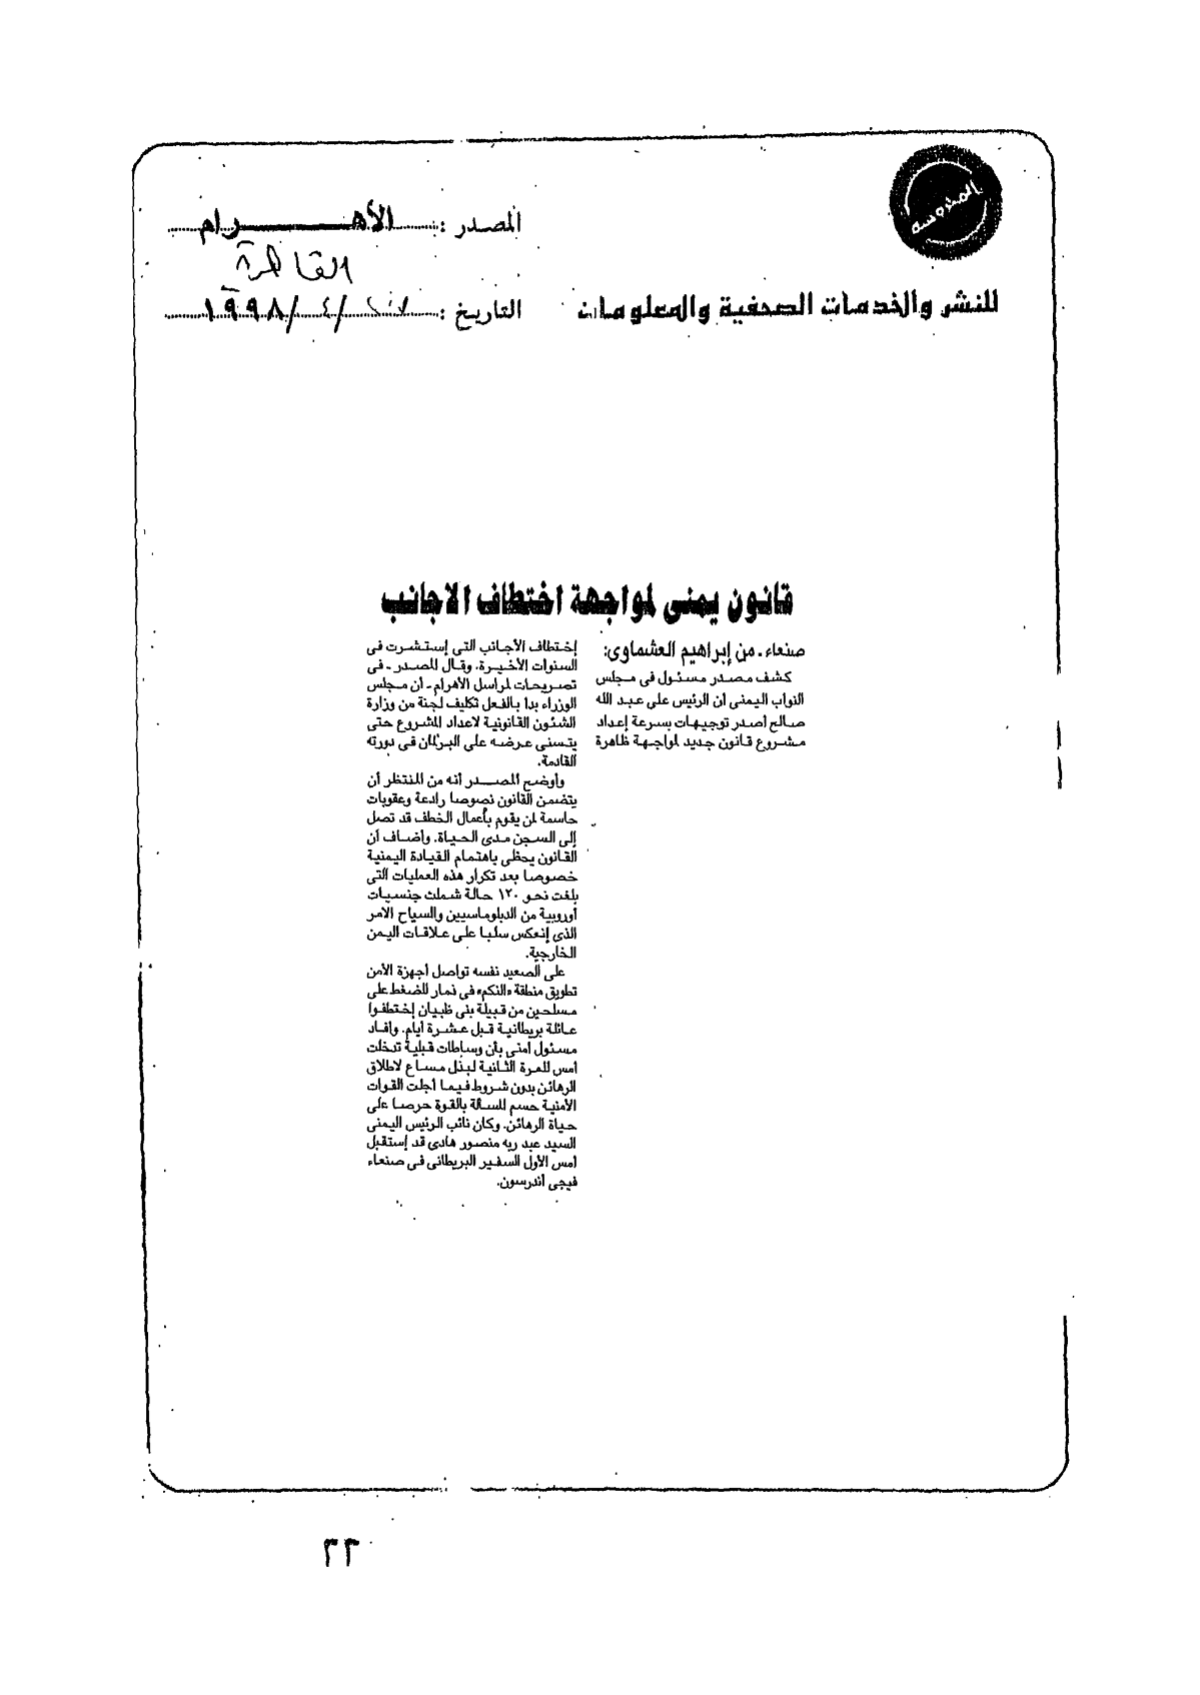 المحروسة
المصدر : الأهـــــــرام
القاهرة
للنشر والخدمات الصحفية والمعلومات
التاريخ : ٢٧ / ٤ / ١٩٩٨
قانون يمنى لمواجهة اختطاف الاجانب
صنعاء ـ من إبراهيم العشماوى:
كشف مصدر مسئول فى مجلس
النواب اليمنى أن الرئيس على عبد الله
صالح أصدر توجيهات بسرعة إعداد
مشروع قانون جديد لمواجهة ظاهرة
إختطاف الأجانب التى إستشرت فى
السنوات الأخيرة. وقال المصدر ـ فى
تصريحات لمراسل الأهرام ـ أن مجلس
الوزراء بدا بالفعل تكليف لجنة من وزارة
الشئون القانونية لاعداد المشروع حتى
يتسنى عرضه على البرلمان فى دورته
القادمة.
وأوضح المصدر أنه من المنتظر أن
يتضمن القانون نصوصا رادعة وعقوبات
حاسمة لمن يقوم بأعمال الخطف قد تصل
إلى السجن مدى الحياة. وأضاف أن
القانون يحظى باهتمام القيادة اليمنية
خصوصا بعد تكرار هذه العمليات التى
بلغت نحو ١٢٠ حالة شملت جنسيات
أوروبية من الدبلوماسيين والسياح الامر
الذى إنعكس سلبا على علاقات اليمن
الخارجية.
على الصعيد نفسه تواصل أجهزة الأمن
تطويق منطقة «النكم» فى ذمار للضغط على
مسلحين من قبيلة بنى ظبيان إختطفوا
عائلة بريطانية قبل عشرة أيام. وأفاد
مسئول أمنى بأن وساطات قبلية تدخلت
أمس للمرة الثانية لبذل مساع لاطلاق
الرهائن بدون شروط فيما أجلت القوات
الأمنية حسم المسألة بالقوة حرصا على
حياة الرهائن. وكان نائب الرئيس اليمنى
السيد عبد ربه منصور هادى قد إستقبل
أمس الأول السفير البريطانى فى صنعاء
فيجى أندرسون.
٢٢